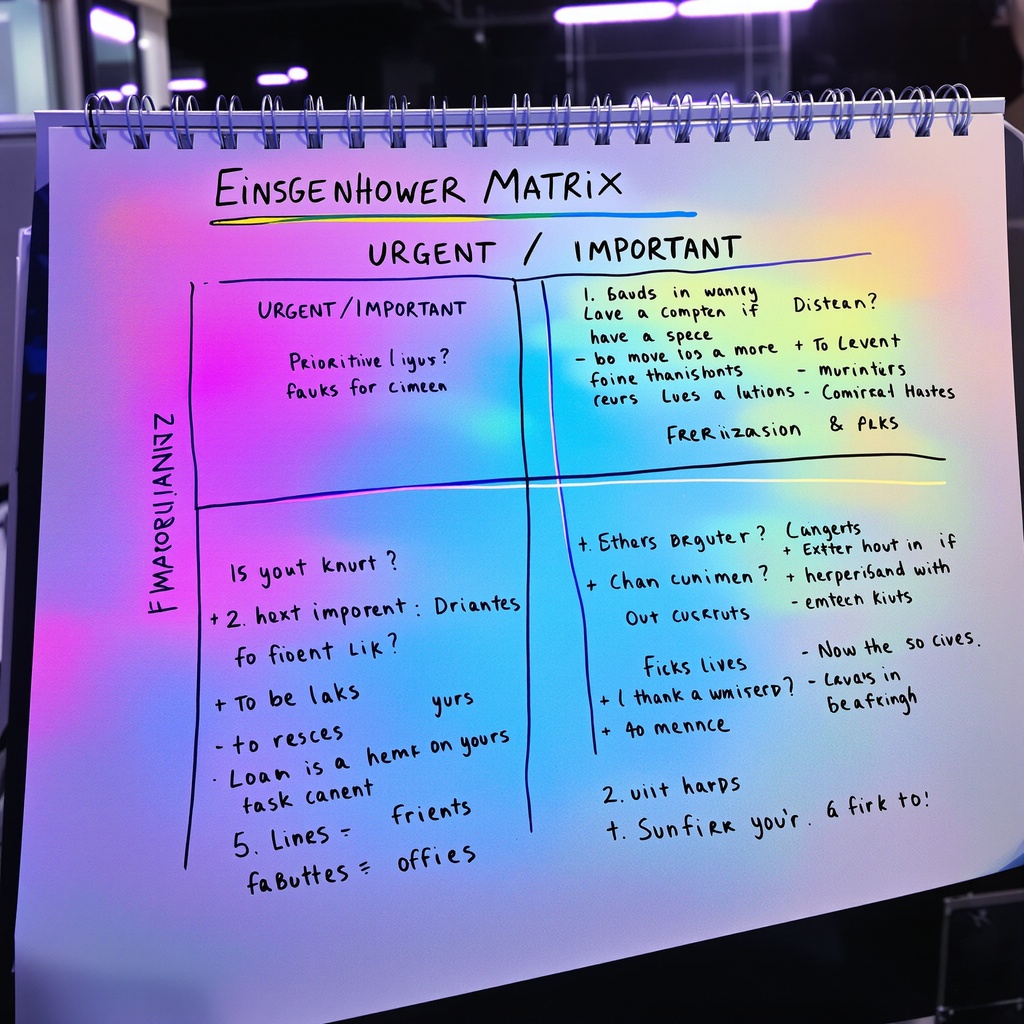 EINSGENHOWER MATRIX
URGENT / IMPORTANT
URGENT/IMPORTANT
PRIORITIVE
fauks for cimeen
1. Gauds in wantry
Lave a compten if
have a spece
- bo move los a more
foine thanishonts
reurs Lues a lutions
Distean?
+ To Levent
- murinters
- Comircal Hastes
FRERIIZASION & PLKS
Is yout knurt?
+ 2. hext imporent : Driantes
fo fioent Lik?
+ To be laks
yurs
- to resces
· Loan is a hemk on yours
task canent
5. Lines = frients
faButtes = offies
+. Ethers BRguter?
+ Chan cunimen?
Out cuskruts
Ficks lives
+ I thank a wmiserd?
+ 40 mennce
Cangerts
+ Extter hout in if
+ herperisand with
- emtech kiuts
- Now the so cives.
- Lavais in
beafkingh
2. uiit hards
t. Sunfirk you'r. & firk to!